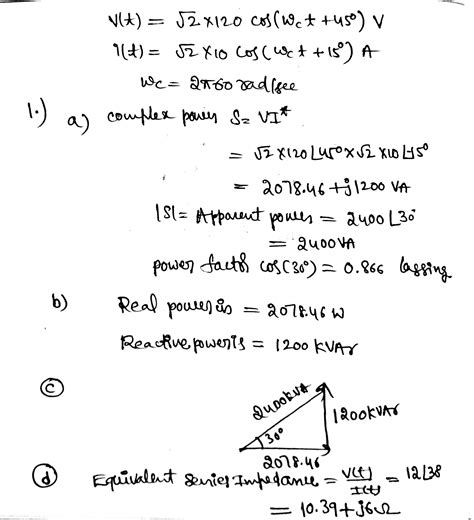 V(t) = √2 × 120 cos(ωc t + 45°) V
i(t) = √2 × 10 cos(ωc t + 15°) A
ωc = 2π60 rad/sec
1.) a) complex power S = VI*
= √2 × 120 ∠45° × √2 × 10 ∠-15°
= 2078.46 + j1200 VA
|S| = Apparent power = 2400 ∠30°
= 2400VA
power factor cos(30°) = 0.866 lagging
b) Real power is = 2078.46 W
Reactive power is = 1200 KVAr
c
2400KVA
1200KVAr
30°
2078.46
d Equivalent Series Impedance = V(t)/I(t) = 12∠30
= 10.39 + j6Ω